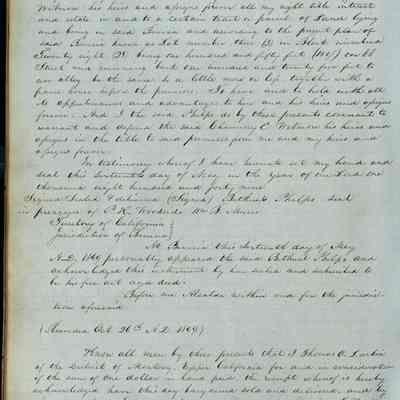 Wetmore his heirs and assigns forever all my right title interest
and estate in and to a certain tract or parcel of Land lying
and being in said Benicia and according to the present plan of
said Benicia known as Lot number three (3) in Block numbered
Twenty eight 28 being one hundred and fifty feet (150 ft) on
Street and running back one hundred and twenty five feet to
an alley be the same a little more or less together with a
frame house upon the premises. To have and to hold with all
its appurtenances and advantages to him and his heirs and assigns
forever. And I the said Phelps do by these presents covenant to
warrant and defend the said Chauncey C Wetmore his heirs and
assigns in the title to said premises from me and my heirs and
assigns forever.
In testimony whereof I have hereunto set my hand and
seal this sixteenth day of May in the year of our Lord one
thousand eight hundred and forty nine
Signed Sealed & delivered (Signed) Bethuel Phelps seal
in presence of
Territory of California }
Jurisdiction of Benicia }
At Benicia this sixteenth day of May
A.D. 1849 personally appeared the said Bethuel Phelps and
acknowledged this instrument by him sealed and subscribed to
be his free act and deed.
Before me Alcalde within and for the jurisdic-
tion aforesaid
(Recorded Oct. 26th A.D. 1849)
Know all men by these presents that I Thomas O. Larkin
of the District of Monterey, Upper California for and in consideration
of the sum of one dollar in hand paid the receipt whereof is hereby
acknowledged have this day bargained sold and delivered, and by